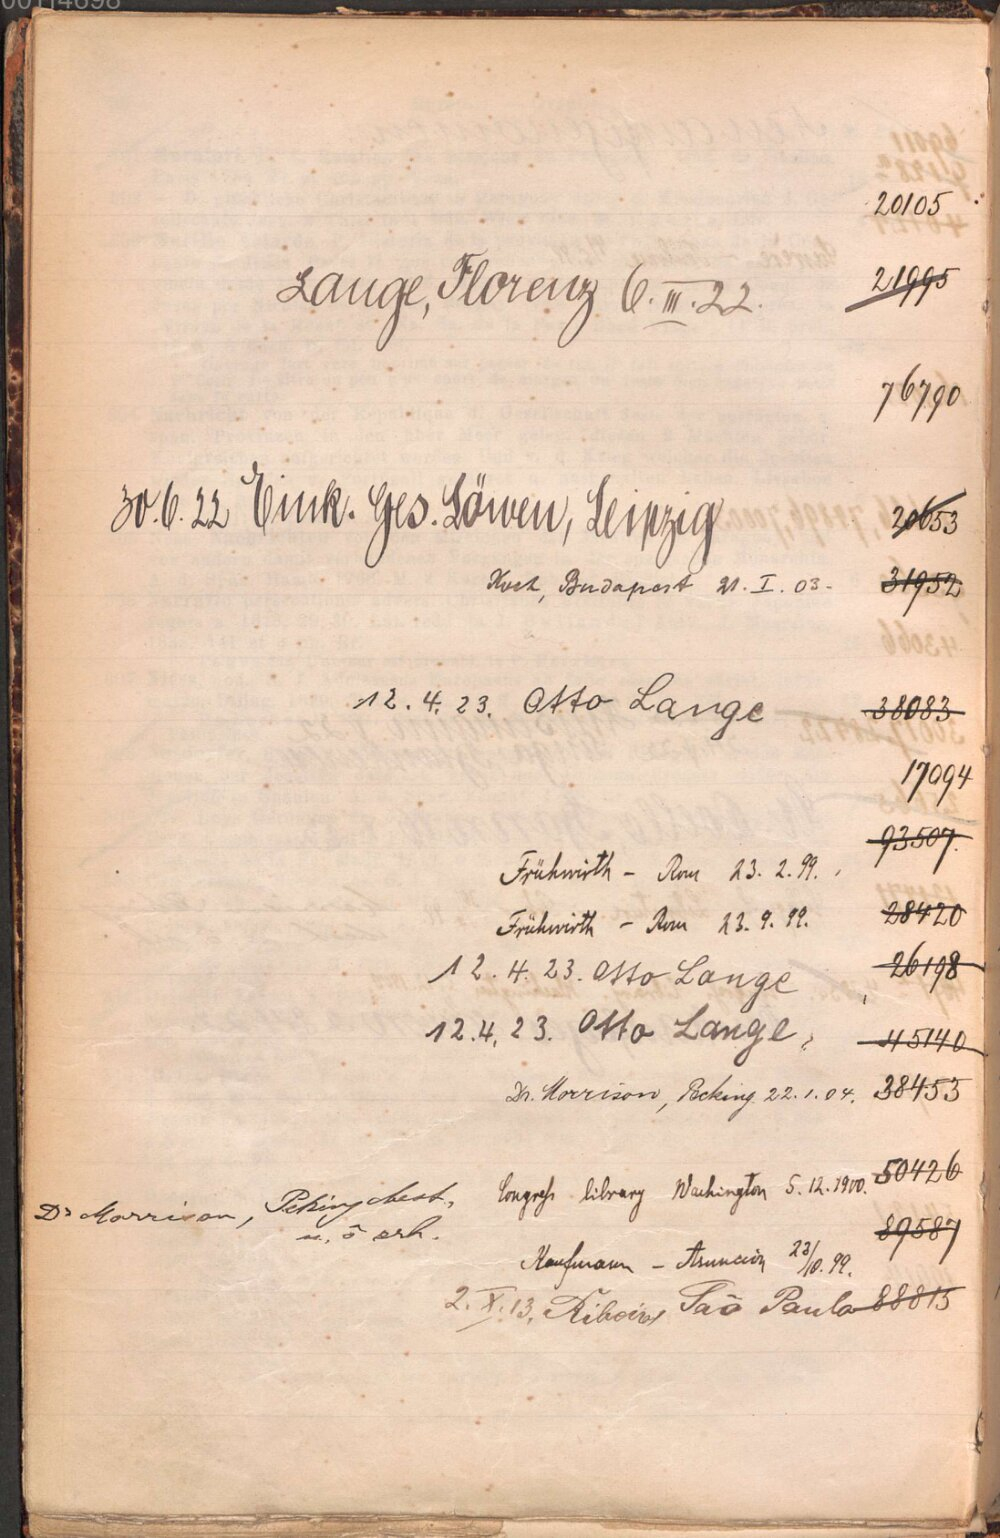 00114698
20105
Lange, Florenz 6. III. 22. 21995
76790
30.6.22 Eink. Ges. Löwen, Leipzig 20653
Budapest 21. I. 03. 31952
12. 4. 23. Otto Lange 38083
17094
93507.
Frühwirth - Rom 23. 2. 99.
Frühwirth - Rom 23. 9. 99. 28420
12. 4. 23. Otto Lange 26198
12. 4. 23. Otto Lange 45140
Dr. Morrison, Peking 22. 1. 04. 38453
Congress library Washington 5. 12. 1900. 50426
Dr Morrison, Peking
89587
Kaufmann - Asuncion 23/10. 99.
2. X. 13. Ribeiro Saõ Paulo 88815